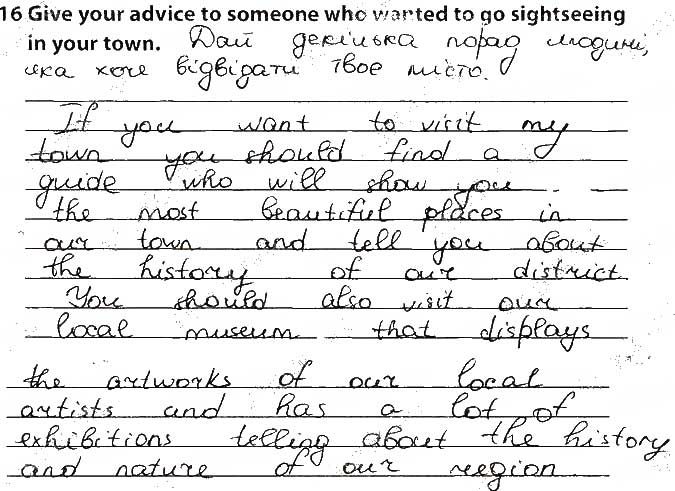 16 Give your advice to someone who wanted to go sightseeing
in your town. Дай декілька порад людині,
яка хоче відвідати твоє місто.
If you want to visit my
town you should find a
guide who will show you
the most beautiful places in
our town and tell you about
the history of our district.
You should also visit our
local museum that displays
the artworks of our local
artists and has a lot of
exhibitions telling about the history
and nature of our region.